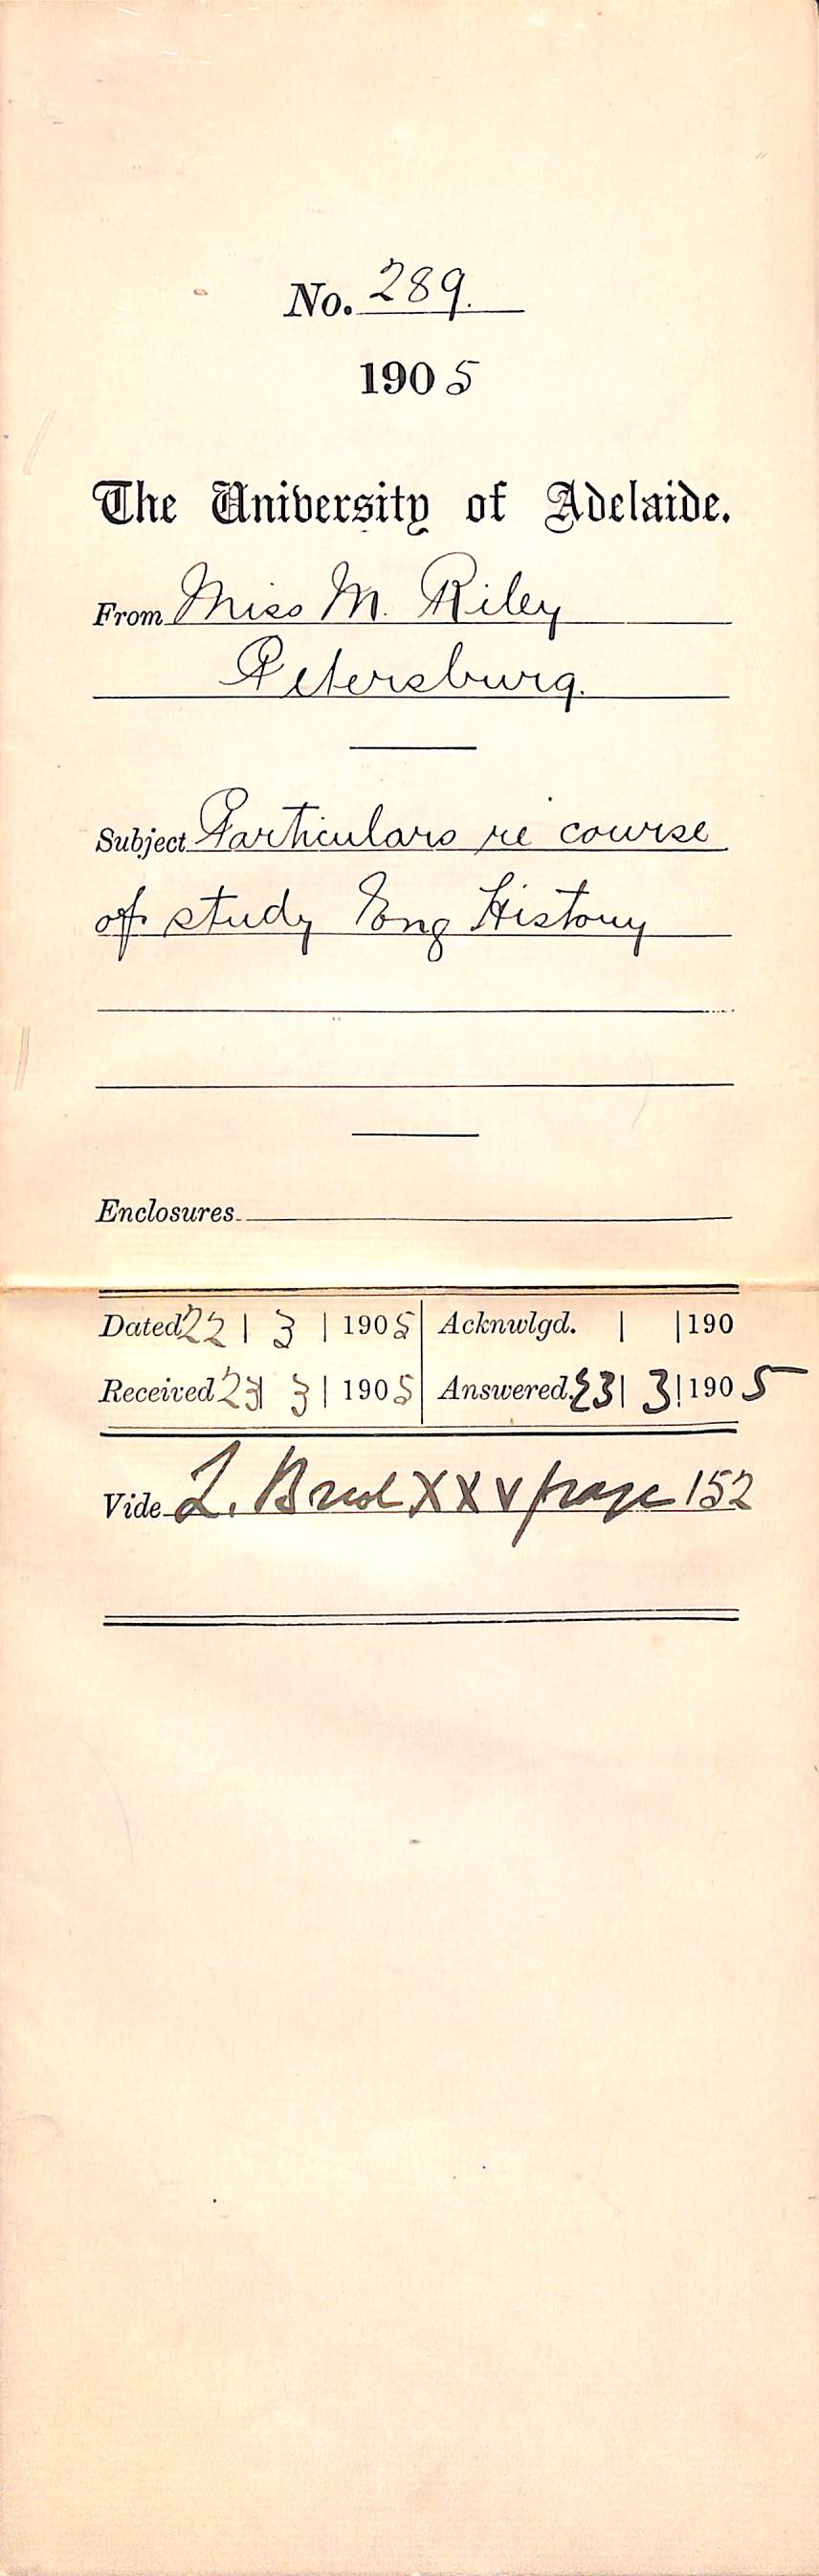 No. 289.
1905
The University of Adelaide.
From Miss M. Riley
Petersburg.
Subject Particulars re course
of study Eng History
Enclosures
Dated 22 | 3 | 1905 Acknwlgd. | | 190
Received 23 | 3 | 1905 Answered. 23 | 3 | 1905
Vide L. XXV page 152